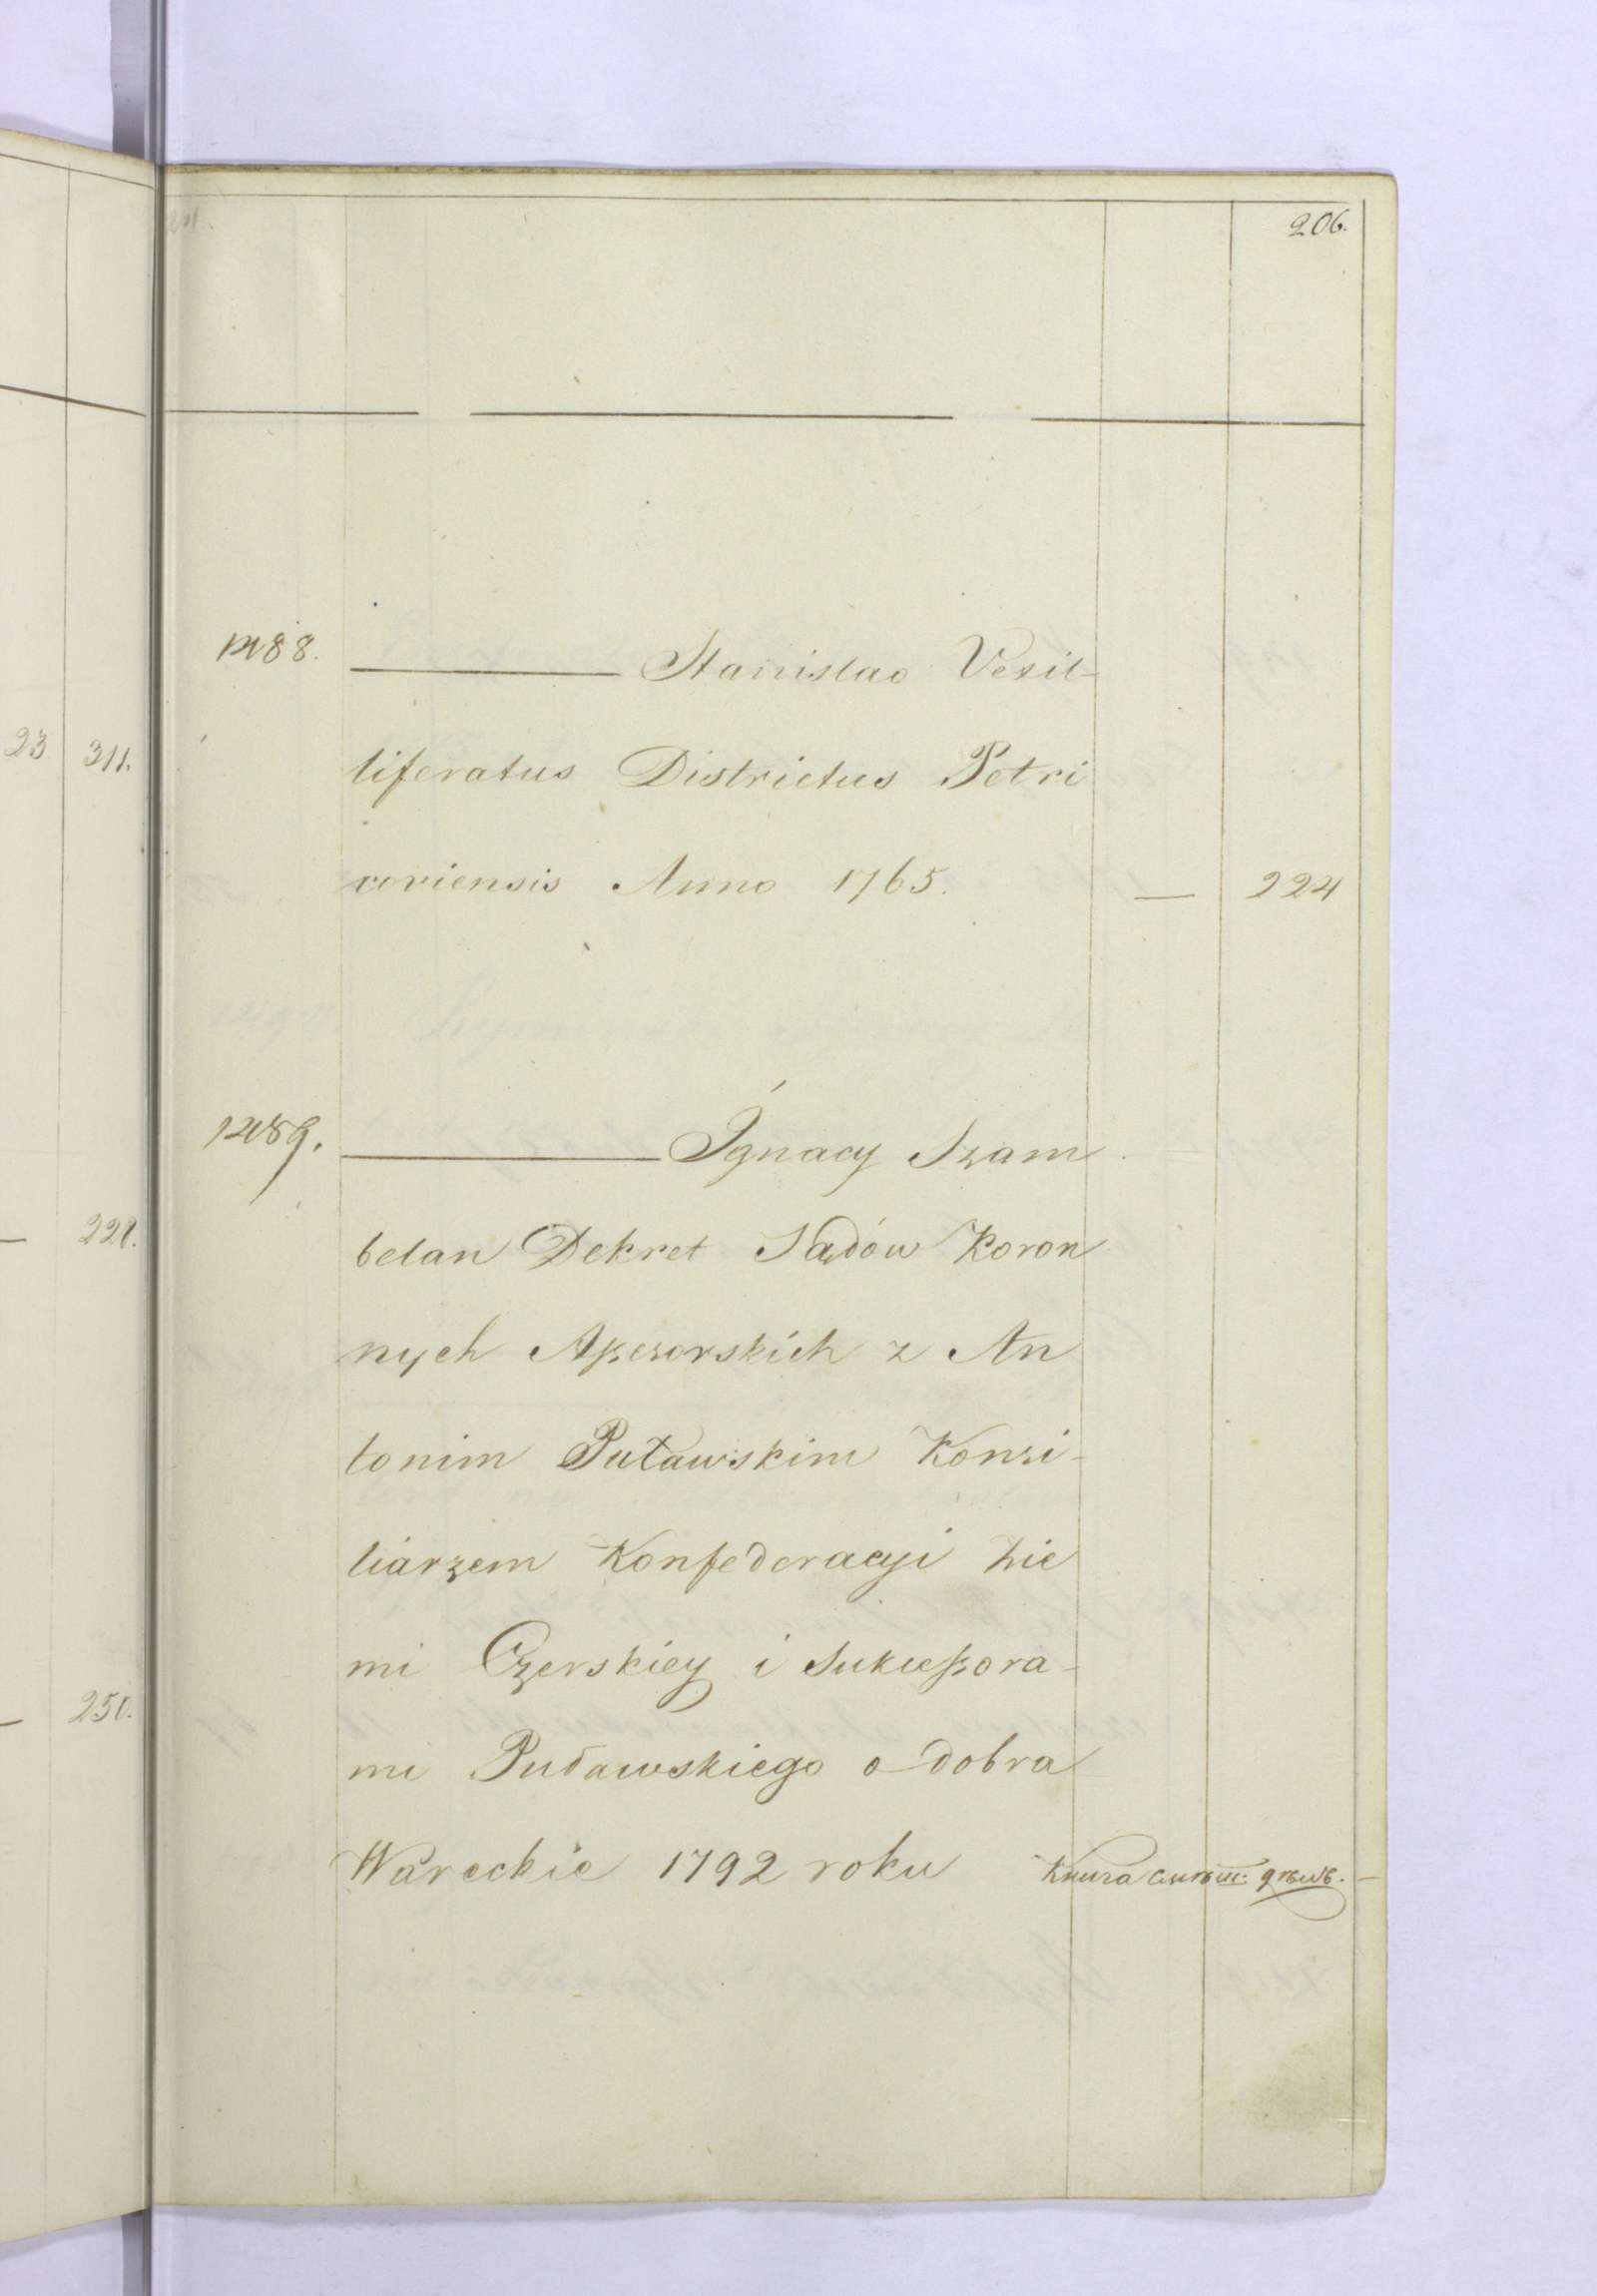 206.
1488. ——— Stanislao Vexil-
liferatus Districtus Petri
coviensis Anno 1765. — 224
1489. ——— Ignacy Szam
belan Dekret Sądów Koron
nych Aßesorskich z An
tonim Puławskim Konsi-
liarzem Konfederacyi Zie
mi Czerskiey i Sukceßora-
mi Puławskiego o dobra
Wareckie 1792 roku Книга
23 311.
— 228.
— 250.